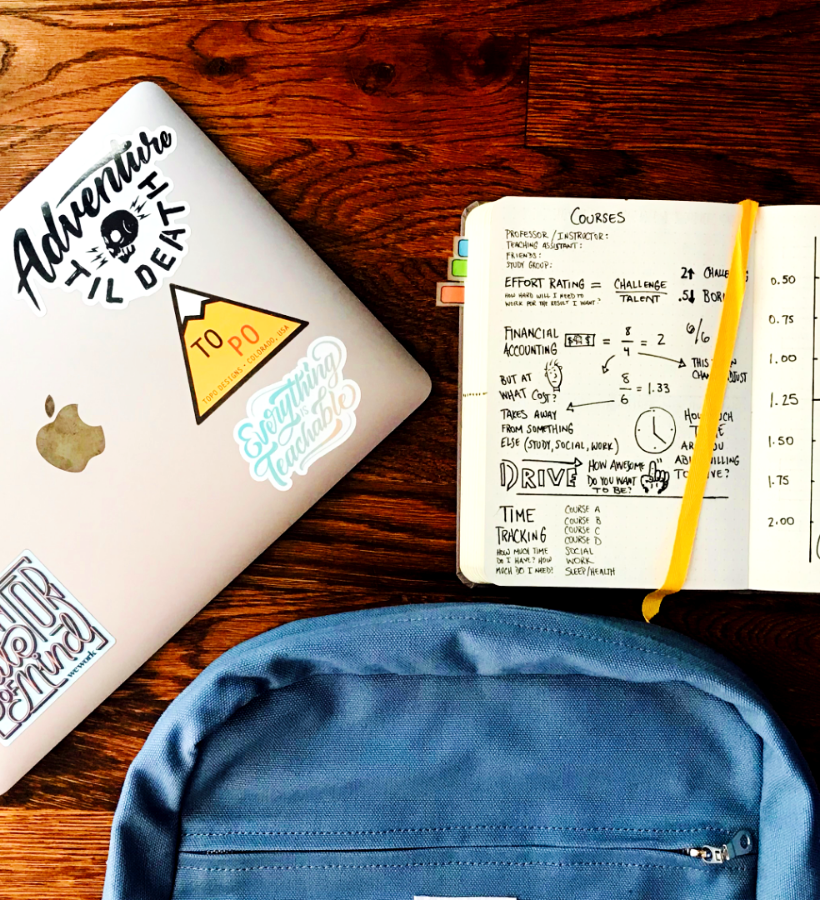 Adventure
TIL DEATH
TO
PO
TOPO DESIGNS • COLORADO, USA
Everything
IS
Teachable
of Mind
wework
COURSES
PROFESSOR / INSTRUCTOR:
TEACHING ASSISTANT:
FRIENDS:
STUDY GROUP:
EFFORT RATING = CHALLENGE
TALENT
HOW HARD WILL I NEED TO
WORK FOR THE RESULT I WANT?
2↑
.5↓
FINANCIAL
ACCOUNTING
$$$ = 8/4 = 2
6/6
THIS
BUT AT
WHAT COST?
8/6 = 1.33
TAKES AWAY
FROM SOMETHING
ELSE (STUDY, SOCIAL, WORK)
DRIVE
HOW AWESOME
DO YOU WANT
TO BE?
TIME
TRACKING
HOW MUCH TIME
DO I HAVE? HOW
MUCH DO I NEED?
COURSE A
COURSE B
COURSE C
COURSE D
SOCIAL
WORK
SLEEP/HEALTH
0.50
0.75
1.00
1.25
1.50
1.75
2.00